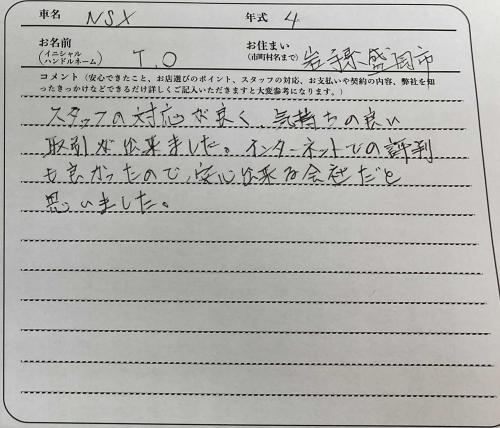 車名 NSX 年式 4
お名前 (イニシャル ハンドルネーム) T.O お住まい (市町村名まで) 岩手県盛岡市
コメント(安心できたこと、お店選びのポイント、スタッフの対応、お支払いや契約の内容、弊社を知
ったきっかけなどできるだけ詳しくご記入いただきますと大変参考になります。)
スタッフの対応が良く、気持ちの良い
取引が出来ました。インターネットでの評判
も良かったので、安心出来る会社だと
思いました。